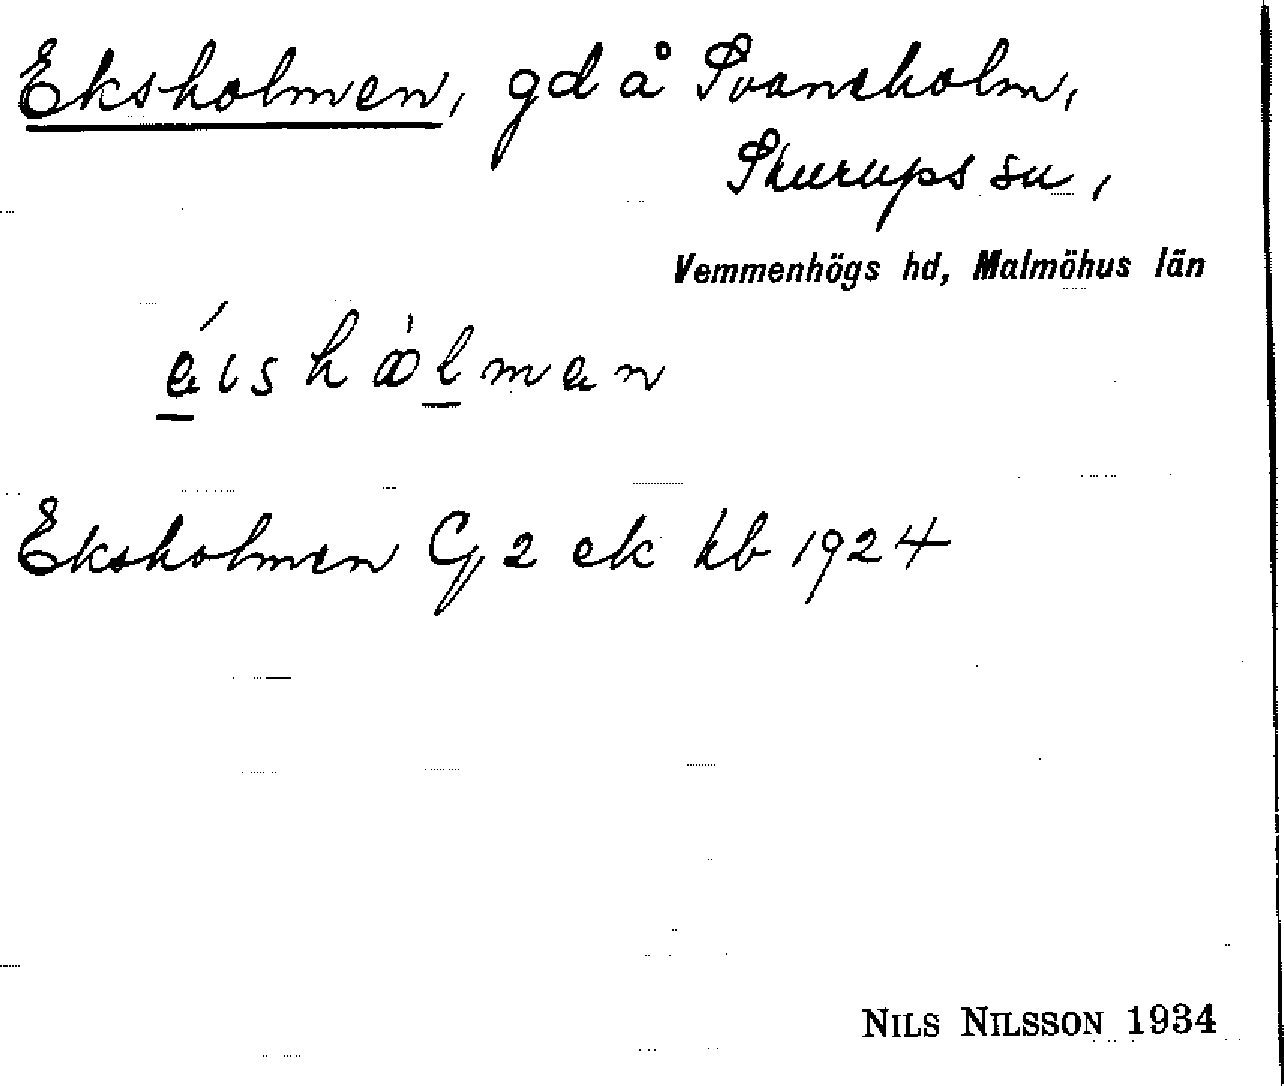 Eksholmen, gd å Svaneholm,
Skurups sn,
Vemmenhögs hd, Malmöhus län
Eksholmen G 2 ek kb 1924
NILS NILSSON 1934